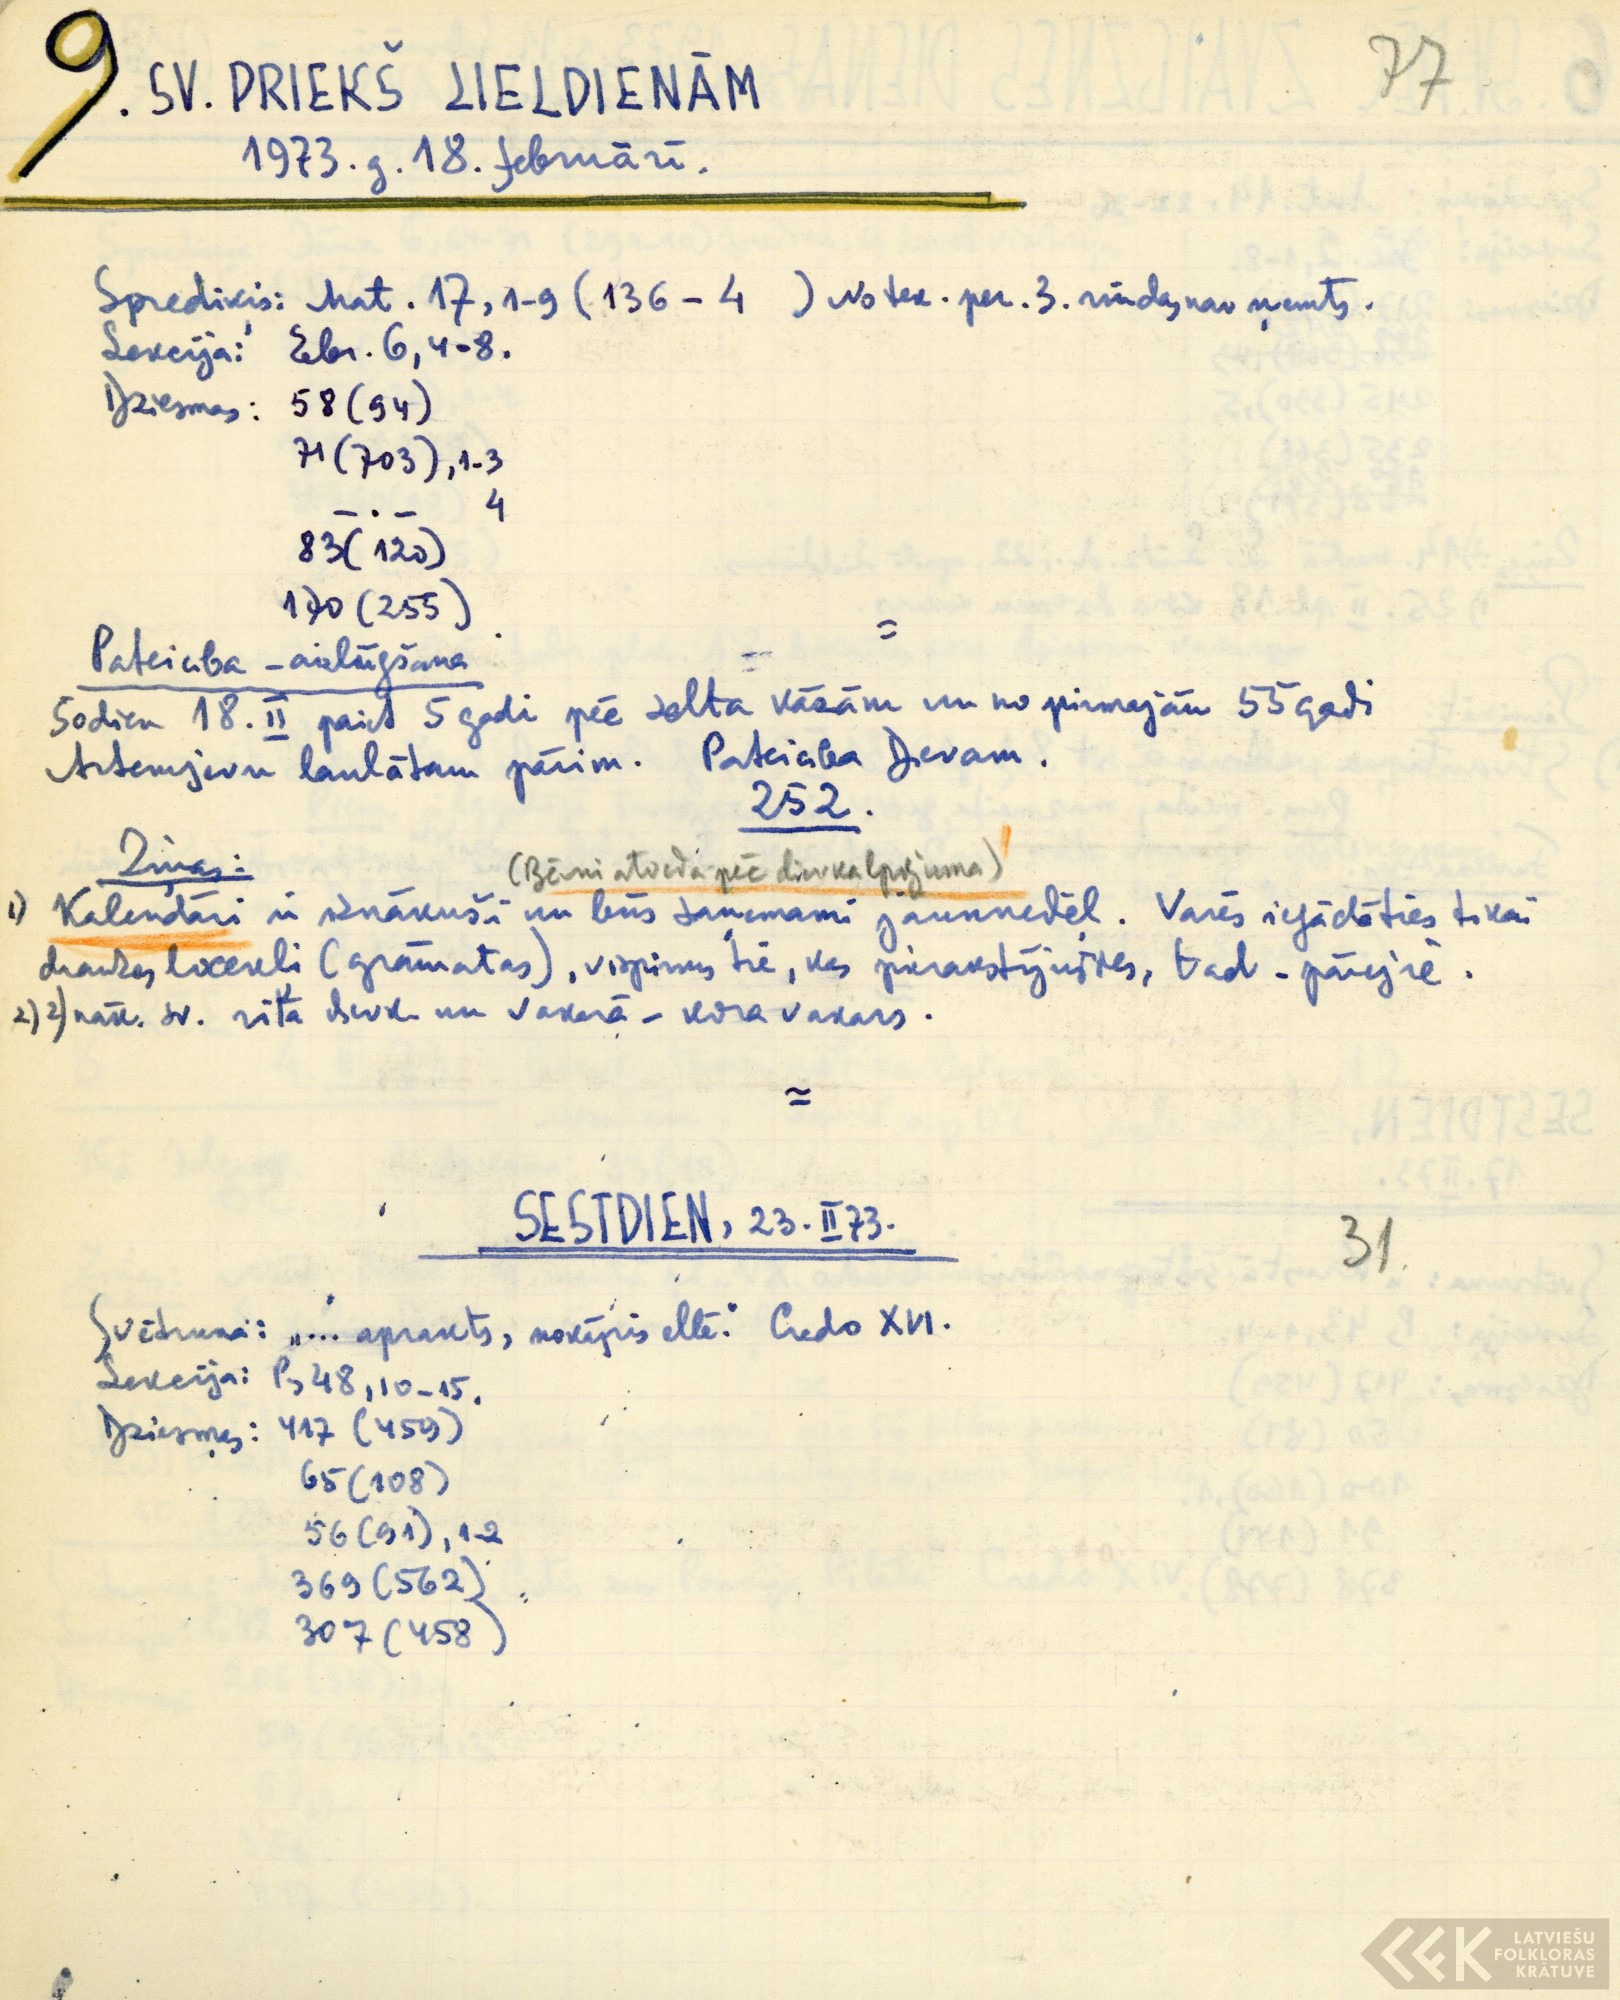 9. SV. PRIEKŠ LIELDIENĀM
77
1973. g. 18. februārī.
Sprediķis: Mat. 17, 1-9 (136 - 4 ) No tek. per. 3. rindas nav ņemts.
Lekcija: Ebr. 6, 4-8.
Dziesmas: 58 (94)
71 (703), 1-3
– . – 4
83 (120)
170 (255)
=
Pateicība - aizlūgšana
Šodien 18. II paiet 5 gadi pēc zelta kāzām un no pirmajām 55 gadi
Artemjevu laulātam pārim. Pateicība Dievam.
252.
Ziņas:
(Bērni atvedā pēc dievkalpojuma)!
1) Kalendāri ir iznākuši un būs saņemami jaunnedēļ. Varēs iegādāties tikai
draudzes locekļi (grāmatas), vispirms tie, kas pierakstījušies, tad - pārējie.
2) 2) nāk. sv. rītā dievk. un vakarā - kora vakars.
≈
SESTDIEN, 23. II 73.
31.
Svētruna: „... aprakts, nokāpis ellē." Credo XVI.
Lekcija: Ps 48, 10-15.
Dziesmas: 417 (459)
65 (108)
56 (91), 1-2
369 (562)
307 (458)
LATVIEŠU
FOLKLORAS
KRĀTUVE